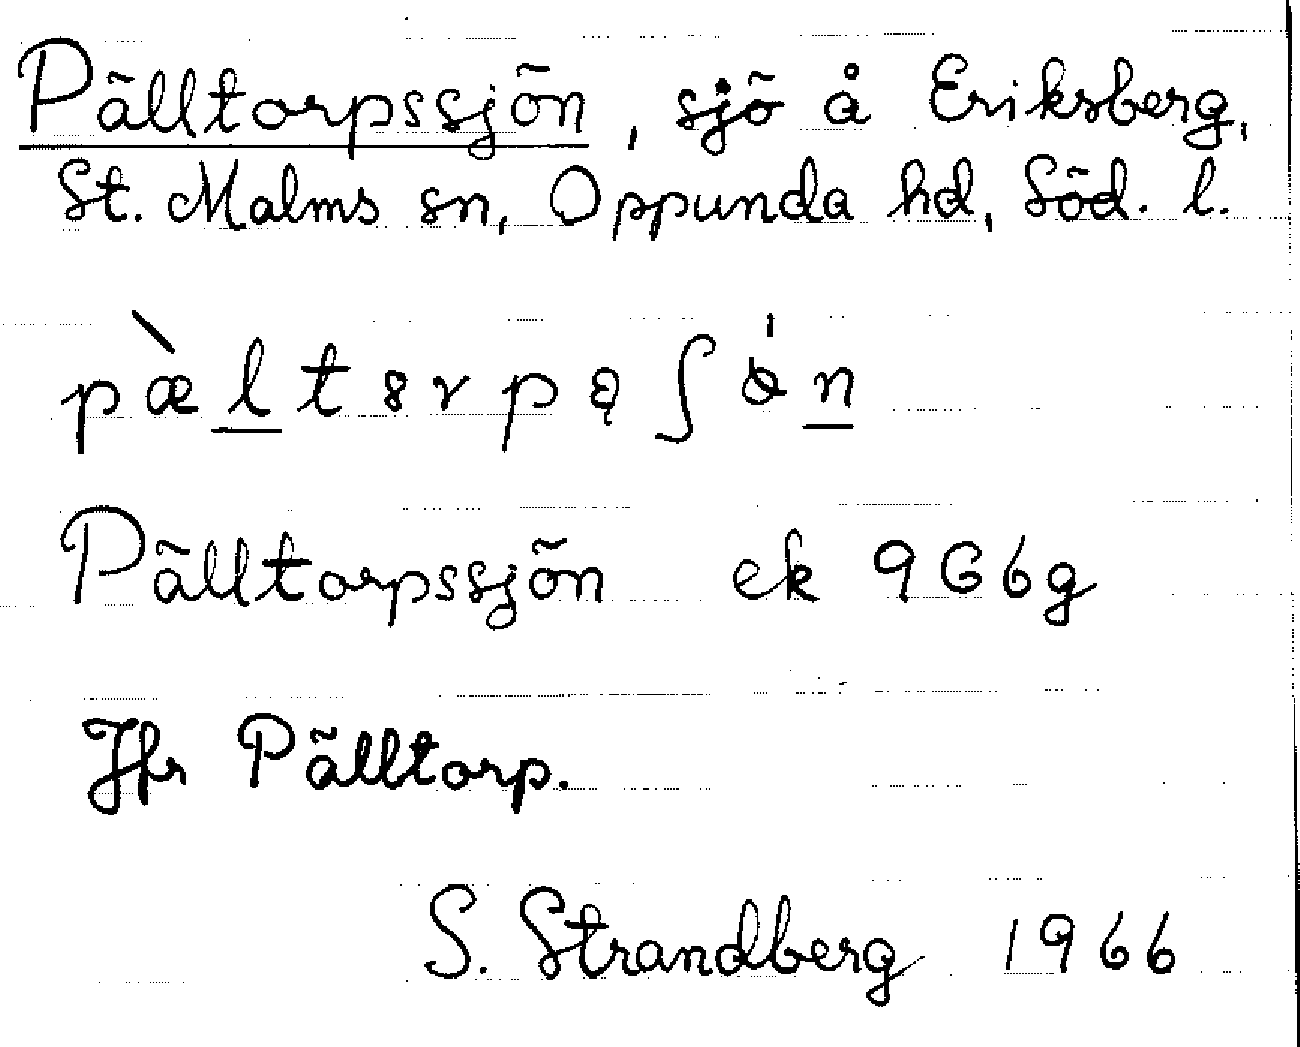 Pälltorpssjön, sjö å Eriksberg,
St. Malms sn, Oppunda hd, Söd. l.
Pälltorpssjön ek 9G6g
Jfr Pälltorp.
S. Strandberg 1966